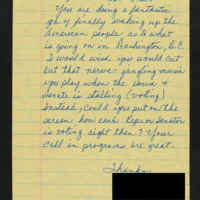 You are doing a fantastic
job of finally waking up the
American people as to what
is going on in Washington, D.C.
I would wish you would cut
out that nerve-jangling music
you play when the House &
Senate is stalling (voting)
Instead, could you put on the
screen how each Rep or Senator
is voting right then? Your
call in programs are great.
Thanks,